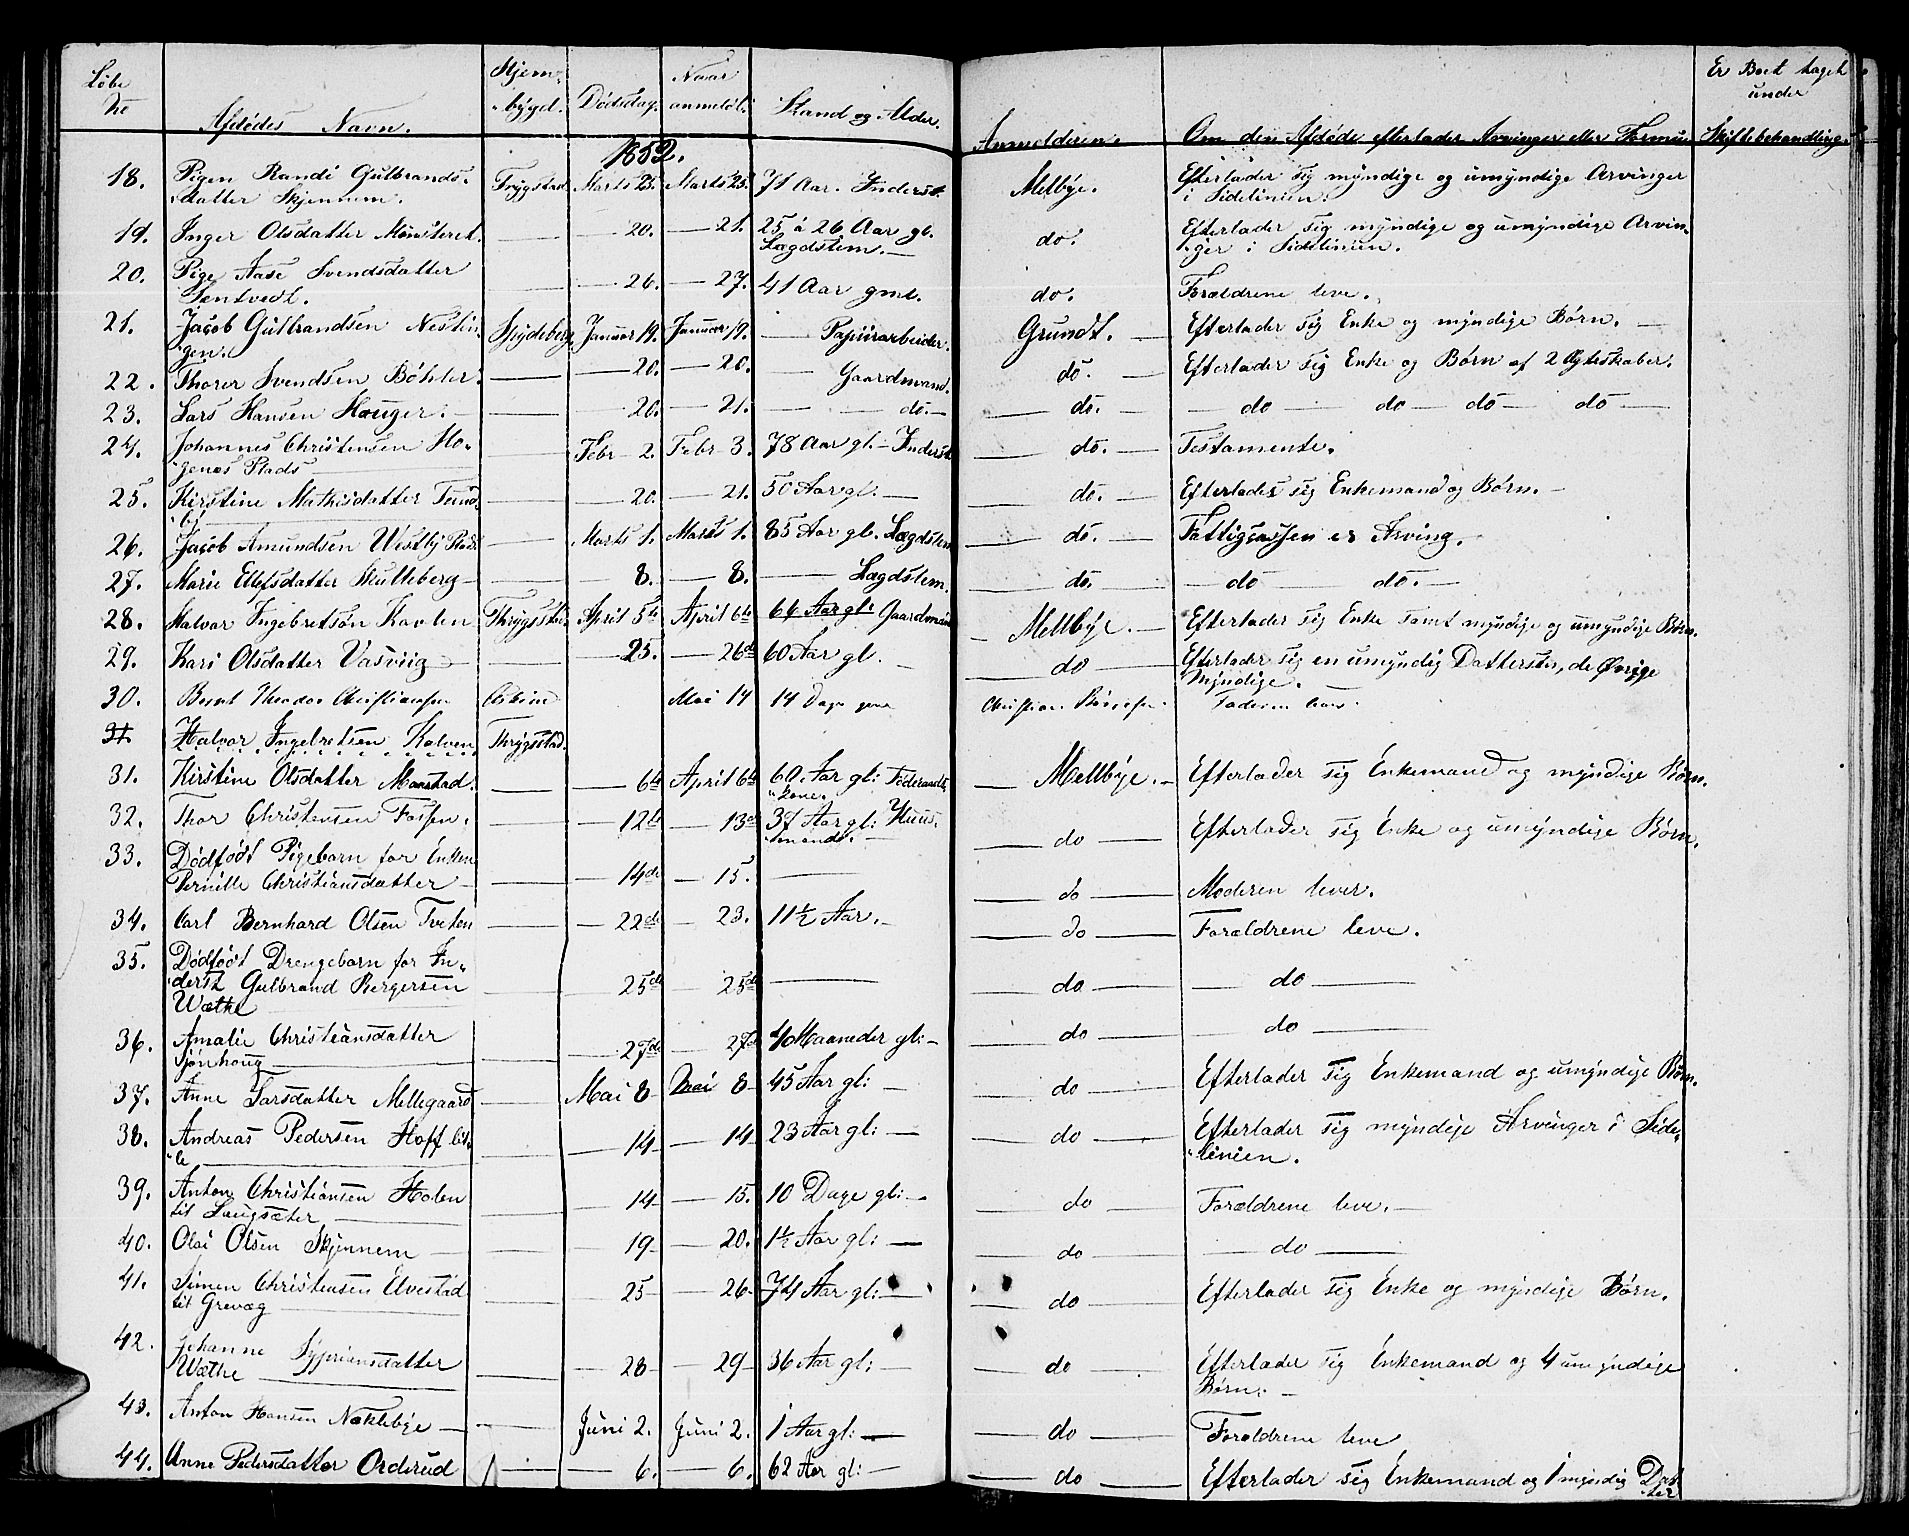 Løbe No | Afdødes Navn. | Hjembygd. | Dødsdag. | Naar anmeldt. | Stand og Alder. | Anmelderen. | Om den Afdøde efterlader Arvinger eller Formue | Er Boet taget under Skiftebehandling.
1882.
18. Pigen Randi Gulbrands- Trygstad Marts 23. Marts 25. 71 Aar. Inderst. Mellbye. Efterlader sig myndige og umyndige Arvinger
datter Skjennem. i Sidelinien.
19. Inger Olsdatter Mønsteret. — 20. — 21. 25 à 26 Aar gl. do. Efterlader sig myndige og umyndige Arvin-
Lægdslem. — ger i Sidelinien.
20. Pige Aase Svendsdatter — 26. — 27. 41 Aar gml. do. Forældrene leve.
Tentvedt.
21. Jacob Gulbrandsen Nestin- Spydeberg Januar 19. Januar 19. — Papiirarbeider. Grundt. — Efterlader sig Enke og myndige Børn. —
gen.
22. Thorer Svendsen Böhler. — 20. — 20. — Gaardmand. do. — Efterlader sig Enke og Børn af 2 Ægteskaber.
23. Lars Hansen Hauger. — 20. — 21. — do. — do. — do — do — do — do —
24. Johannes Christensen Ho- — Febr 2. Febr 3. 78 Aar gl. Inderst do. — Testamente.
genes Plads
25. Kirstine Mathisdatter Tund- — 20. — 21. 50 Aar gl. — do. — Efterlader sig Enkemand og Børn. —
by
26. Jacob Amundsen Westby Plads Marts 1. Marts 1. 85 Aar gl. Lægdslem do. — Fattigcassen er Arving.
27. Marie Ellefsdatter Skulleberg — 8. — 8. — Lægdslem. do. — do do. —
28. Halvor Ingebretsøn Kavlen Thrygstad April 5te April 6te 64 Aar gl: Gaardmand — Mellbye. — Efterlader sig Enke samt myndige og umyndige Børn.
29. Kari Olsdatter Vasviig — 25. — 26de 60 Aar gl. — do — Efterlader sig en umyndig Dattersøn, de Øvrige
Myndige.
30. Bernt Theodor Christiansen Askim Mai 14 14 Dage gml Christian Faderen lever.
31 Halvor Ingebretsen Kalven Thrygstad.
31. Kirstine Olsdatter Monstad. — 6te April 6te 60 Aar gl: Føderaads- — Mellbye. — Efterlader sig Enkemand og myndige Børn.
kone.
32. Thor Christensen Fossen. — 12te — 13de 37 Aar gl: Huus- — do — Efterlader sig Enke og umyndige Børn.
mand. —
33. Dødfødt Pigebarn for Enken — 14de — 15. — do — Moderen lever.
Pernille Christiansdatter —
34. Carl Bernhard Olsen Tveten — 22de — 23. 11½ Aar. — do — Forældrene leve.
35. Dødfødt Drengebarn for In- — 25de — 25de — do — do —
derst Gulbrand Bergersen
Wæthe
36. Amalie Christiansdatter — 27de — 27de 4 Maaneder gl: — do — do —
Sjønhoug —
37. Anne Larsdatter Mellegaard — Mai 8 Mai 8 — 45 Aar gl: — do — Efterlader sig Enkemand og umyndige Børn.
38. Andreas Pedersen Hoff lit- — 14 — 14 23 Aar gl: — do — Efterlader sig myndige Arvinger i Side-
le — linien.
39. Anton Christiansen Holen — 14 — 15. 10 Dage gl: — do — Forældrene leve. —
til Langsæter —
40. Olai Olsen Skjennem — 19 — 20. 1½ Aar gl: — do — do —
41. Simen Christensen Ulvestad — 25 — 26 74 Aar gl: — do — Efterlader sig Enke og myndige Børn.
til Grevæg
42. Johanne Sypriansdatter — 28 — 29 — 36 Aar gl: — do — Efterlader sig Enkemand og 4 umyndige
Wæthe — Børn. —
43. Anton Hansen Næklebye — Juni 2. Juni 2. 1 Aar gl: — do — Forældrene leve
44. Anne Pedersdatter Orderud — 6. — 6. 62 Aar gl: — do — Efterlader sig Enkemand og 1 myndig Dat-
ter